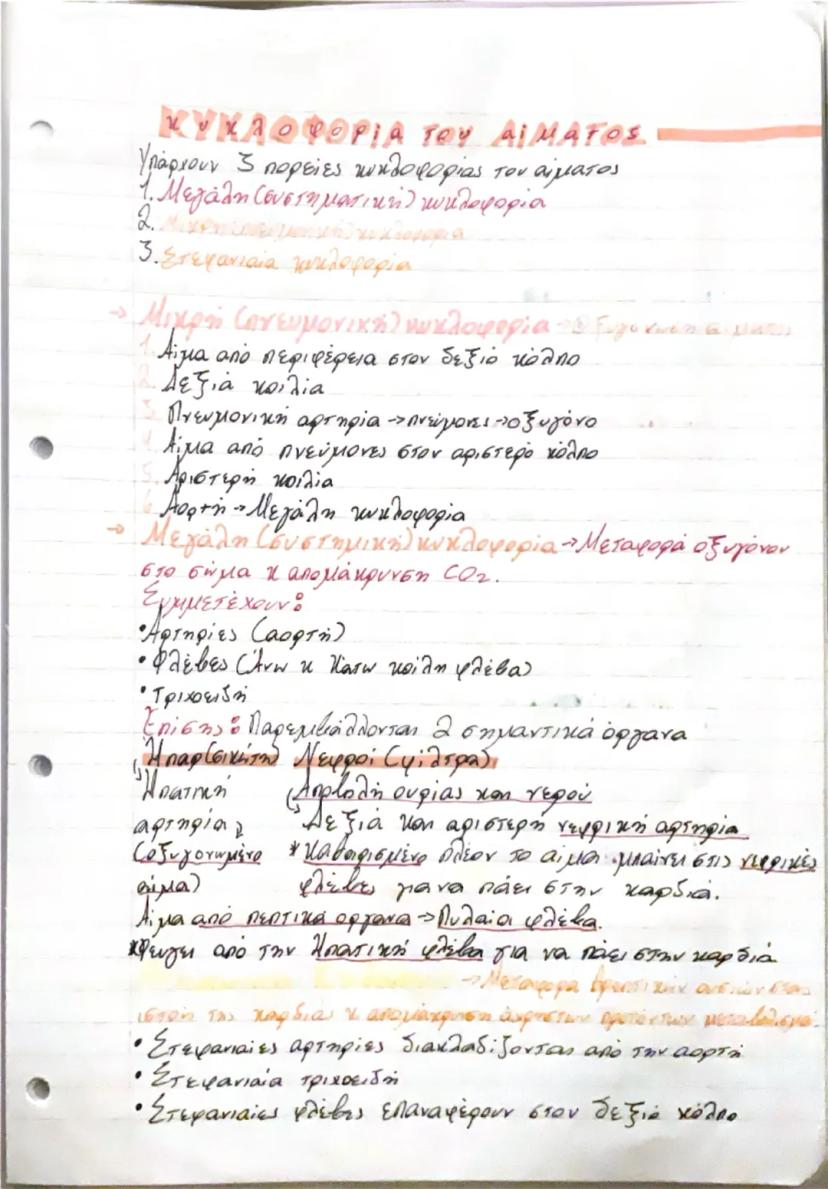 ΚΥΚΛΟΦΟΡΙΑ ΤΟΥ ΑΙΜΑΤΟΣ
Υπάρχουν 3 πορείες κυκλοφορίας του αίματος
1. Μεγάλη (συστηματική) κυκλοφορία
2. Μικρή (πνευμονική) κυκλοφορία
3. Στεφανιαία κυκλοφορία
→ Μικρή (πνευμονική) κυκλοφορία → Οξυγόνωση αίματος
1. Αίμα από περιφέρεια στον δεξιό κόλπο
2. Δεξιά κοιλία
3. Πνευμονική αρτηρία → πνεύμονες → οξυγόνο
4. Αίμα από πνεύμονες στον αριστερό κόλπο
5. Αριστερή κοιλία
6. Αορτή → Μεγάλη κυκλοφορία
→ Μεγάλη (συστημική) κυκλοφορία → Μεταφορά οξυγόνου
στο σώμα κ απομάκρυνση CO2.
Συμμετέχουν:
• Αρτηρίες (αορτή)
• Φλέβες (Άνω κ Κάτω κοίλη φλέβα)
• Τριχοειδή
Επίσης: Παρεμβάλλονται 2 σημαντικά όργανα
Ήπαρ (σικώτι) Νεφροί (φίλτρα)
Ηπατική Αποβολή ουρίας και νερού
αρτηρία Δεξιά και αριστερή νεφρική αρτηρία
(οξυγονωμένο * Καθαρισμένο πλέον το αίμα μπαίνει στις νεφρικές
αίμα) φλέβες για να πάει στην καρδιά.
Αίμα από πεπτικά όργανα → Πυλαία φλέβα.
* φεύγει από την Ηπατική φλέβα για να πάει στην καρδιά
→ Μεταφορά θρεπτικών ουσιών στον
ιστό της καρδιάς κ απομάκρυνση άχρηστων προϊόντων μεταβολισμού
• Στεφανιαίες αρτηρίες διακλαδίζονται από την αορτή
• Στεφανιαία τριχοειδή
• Στεφανιαίες φλέβες επαναφέρουν στον δεξιό κόλπο